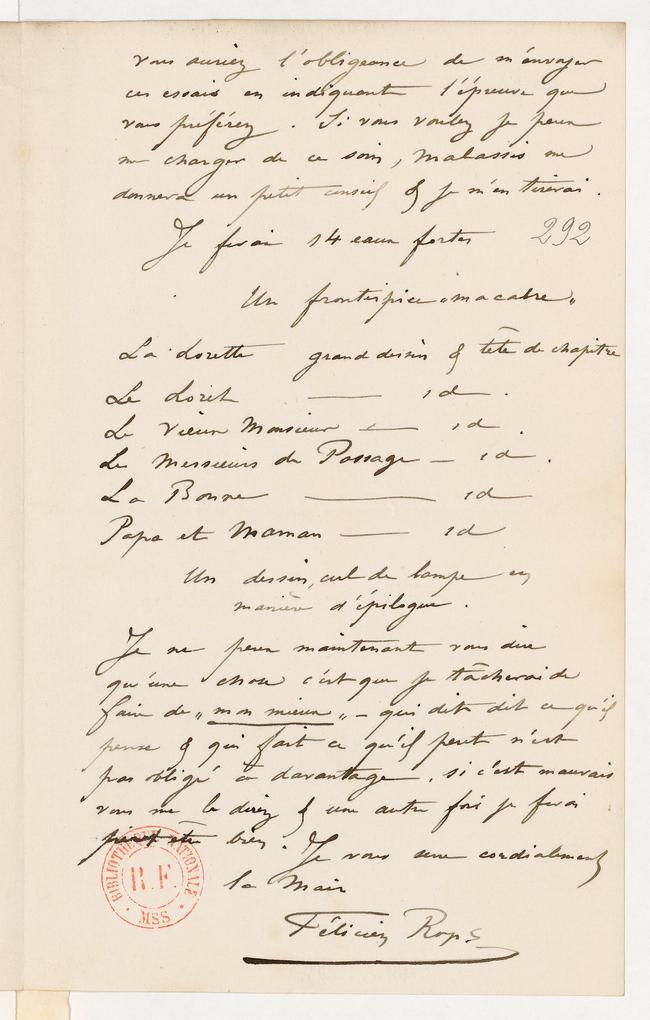 vous auriez l'obligeance de m'envoyer
ces essais en indiquant l'épreuve que
vous préférez. Si vous voulez je peux
me charger de ce soin, Malassis me
donnera un petit conseil & je m'en tirerai.
Je ferai 14 eaux fortes 292
Un frontispice „macabre„
La Lorette grand dessin & tête de chapitre
Le Loret —— id.
Le Vieux Monsieur —— id.
Les Messieurs de Passage — id.
La Bonne —— id
Papa et Maman —— id
Un dessin, cul de lampe en
manière d'épilogue.
Je ne peux maintenant vous dire
qu'une chose c'est que je tâcherai de
faire de „mon mieux„ – qui dit dit ce qu'il
pense & qui fait ce qu'il peut n'est
pas obligé à davantage, si c'est mauvais
vous me le direz & une autre fois je ferai
peut être bien. Je vous serre cordialement
la Main
Félicien Rops
BIBLIOTHEQUE NATIONALE
R.F.
MSS